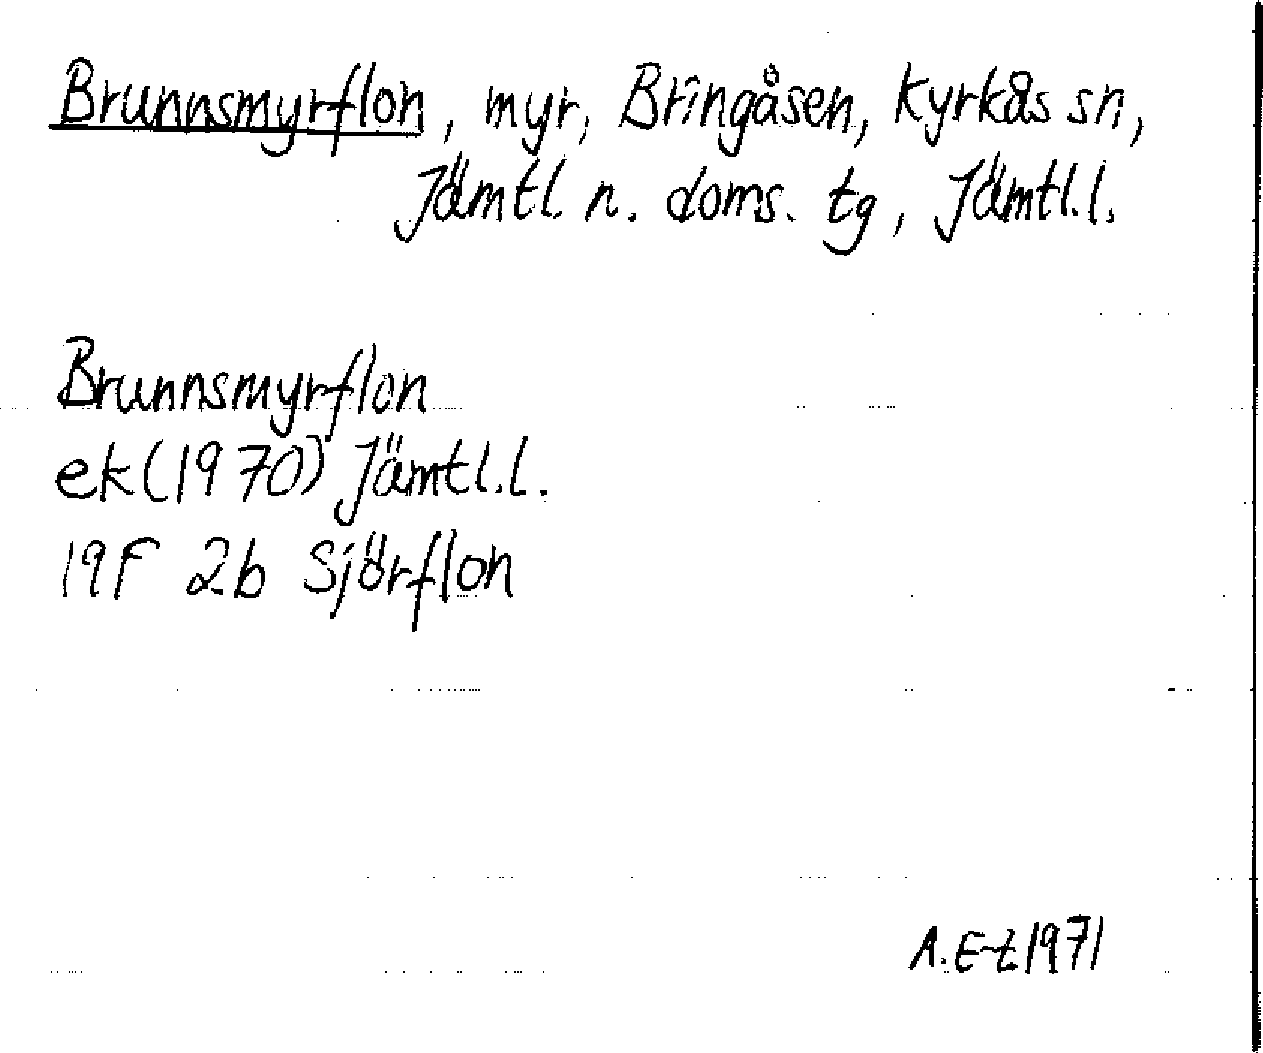 Brunnsmyrflon, myr, Bringåsen, Kyrkås sn,
Jämtl. n. doms. tg, Jämtl.l.
Brunnsmyrflon
ek(1970) Jämtl.l.
19F 2b Sjörflon
A.E-t 1971